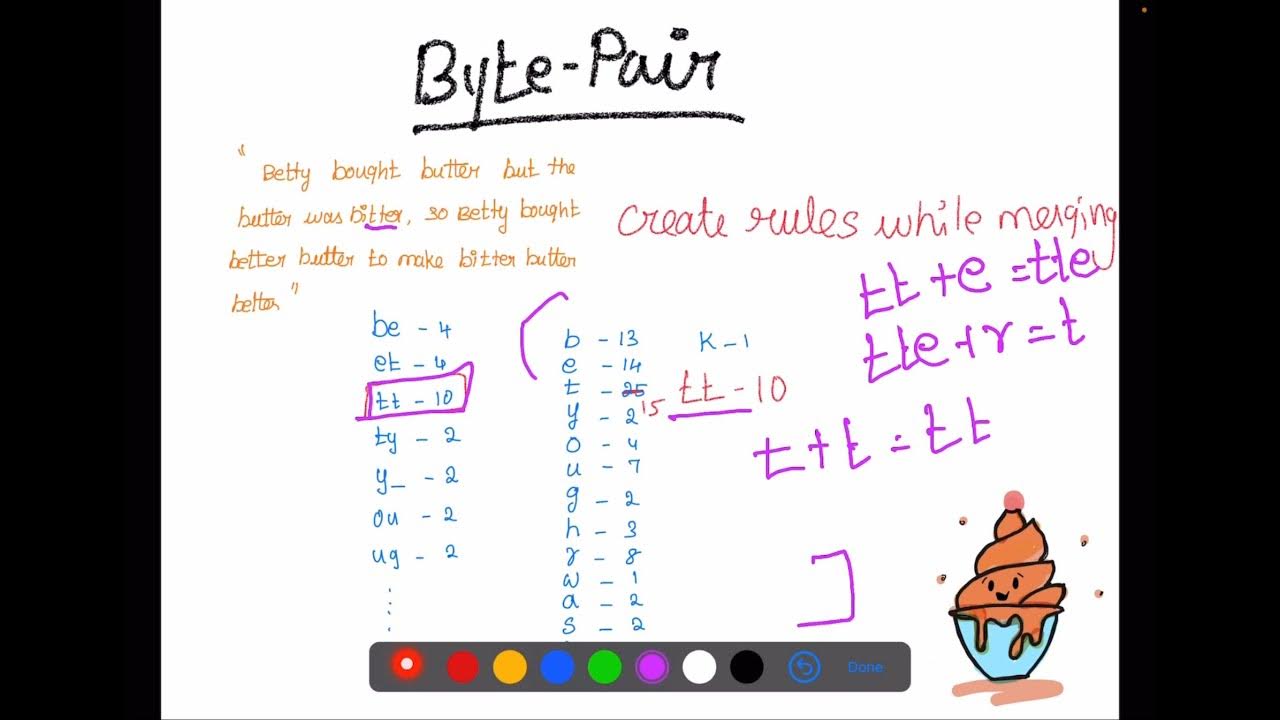 Byte-Pair
" Betty bought butter but the
butter was bitter, so Betty bought
better butter to make bitter butter
better "
create rules while merging
tt + e = tte
tte + r = t
t + t = tt
be - 4
et - 4
tt - 10
ty - 2
y_ - 2
ou - 2
ug - 2
b - 13
e - 14
t - 25 15
y - 2
o - 4
u - 7
g - 2
h - 3
r - 8
w - 1
a - 2
s - 2
K - 1
tt - 10
Done